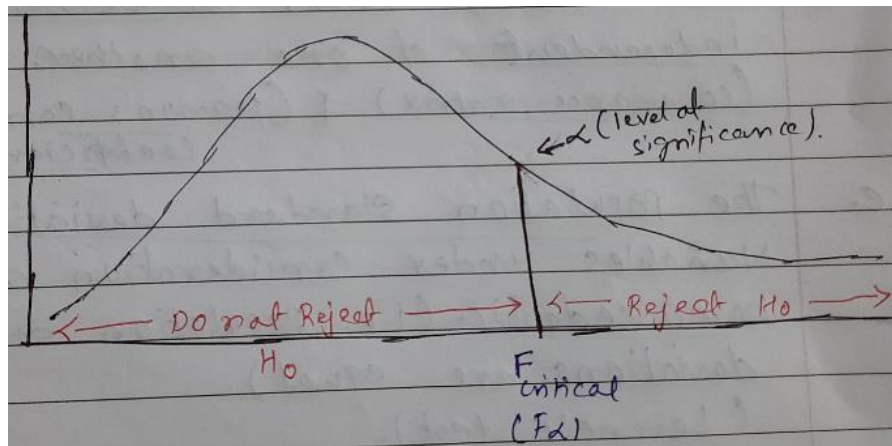 α (level of
significance).
Do not Reject
H₀
Reject H₀
F
critical
(Fα)